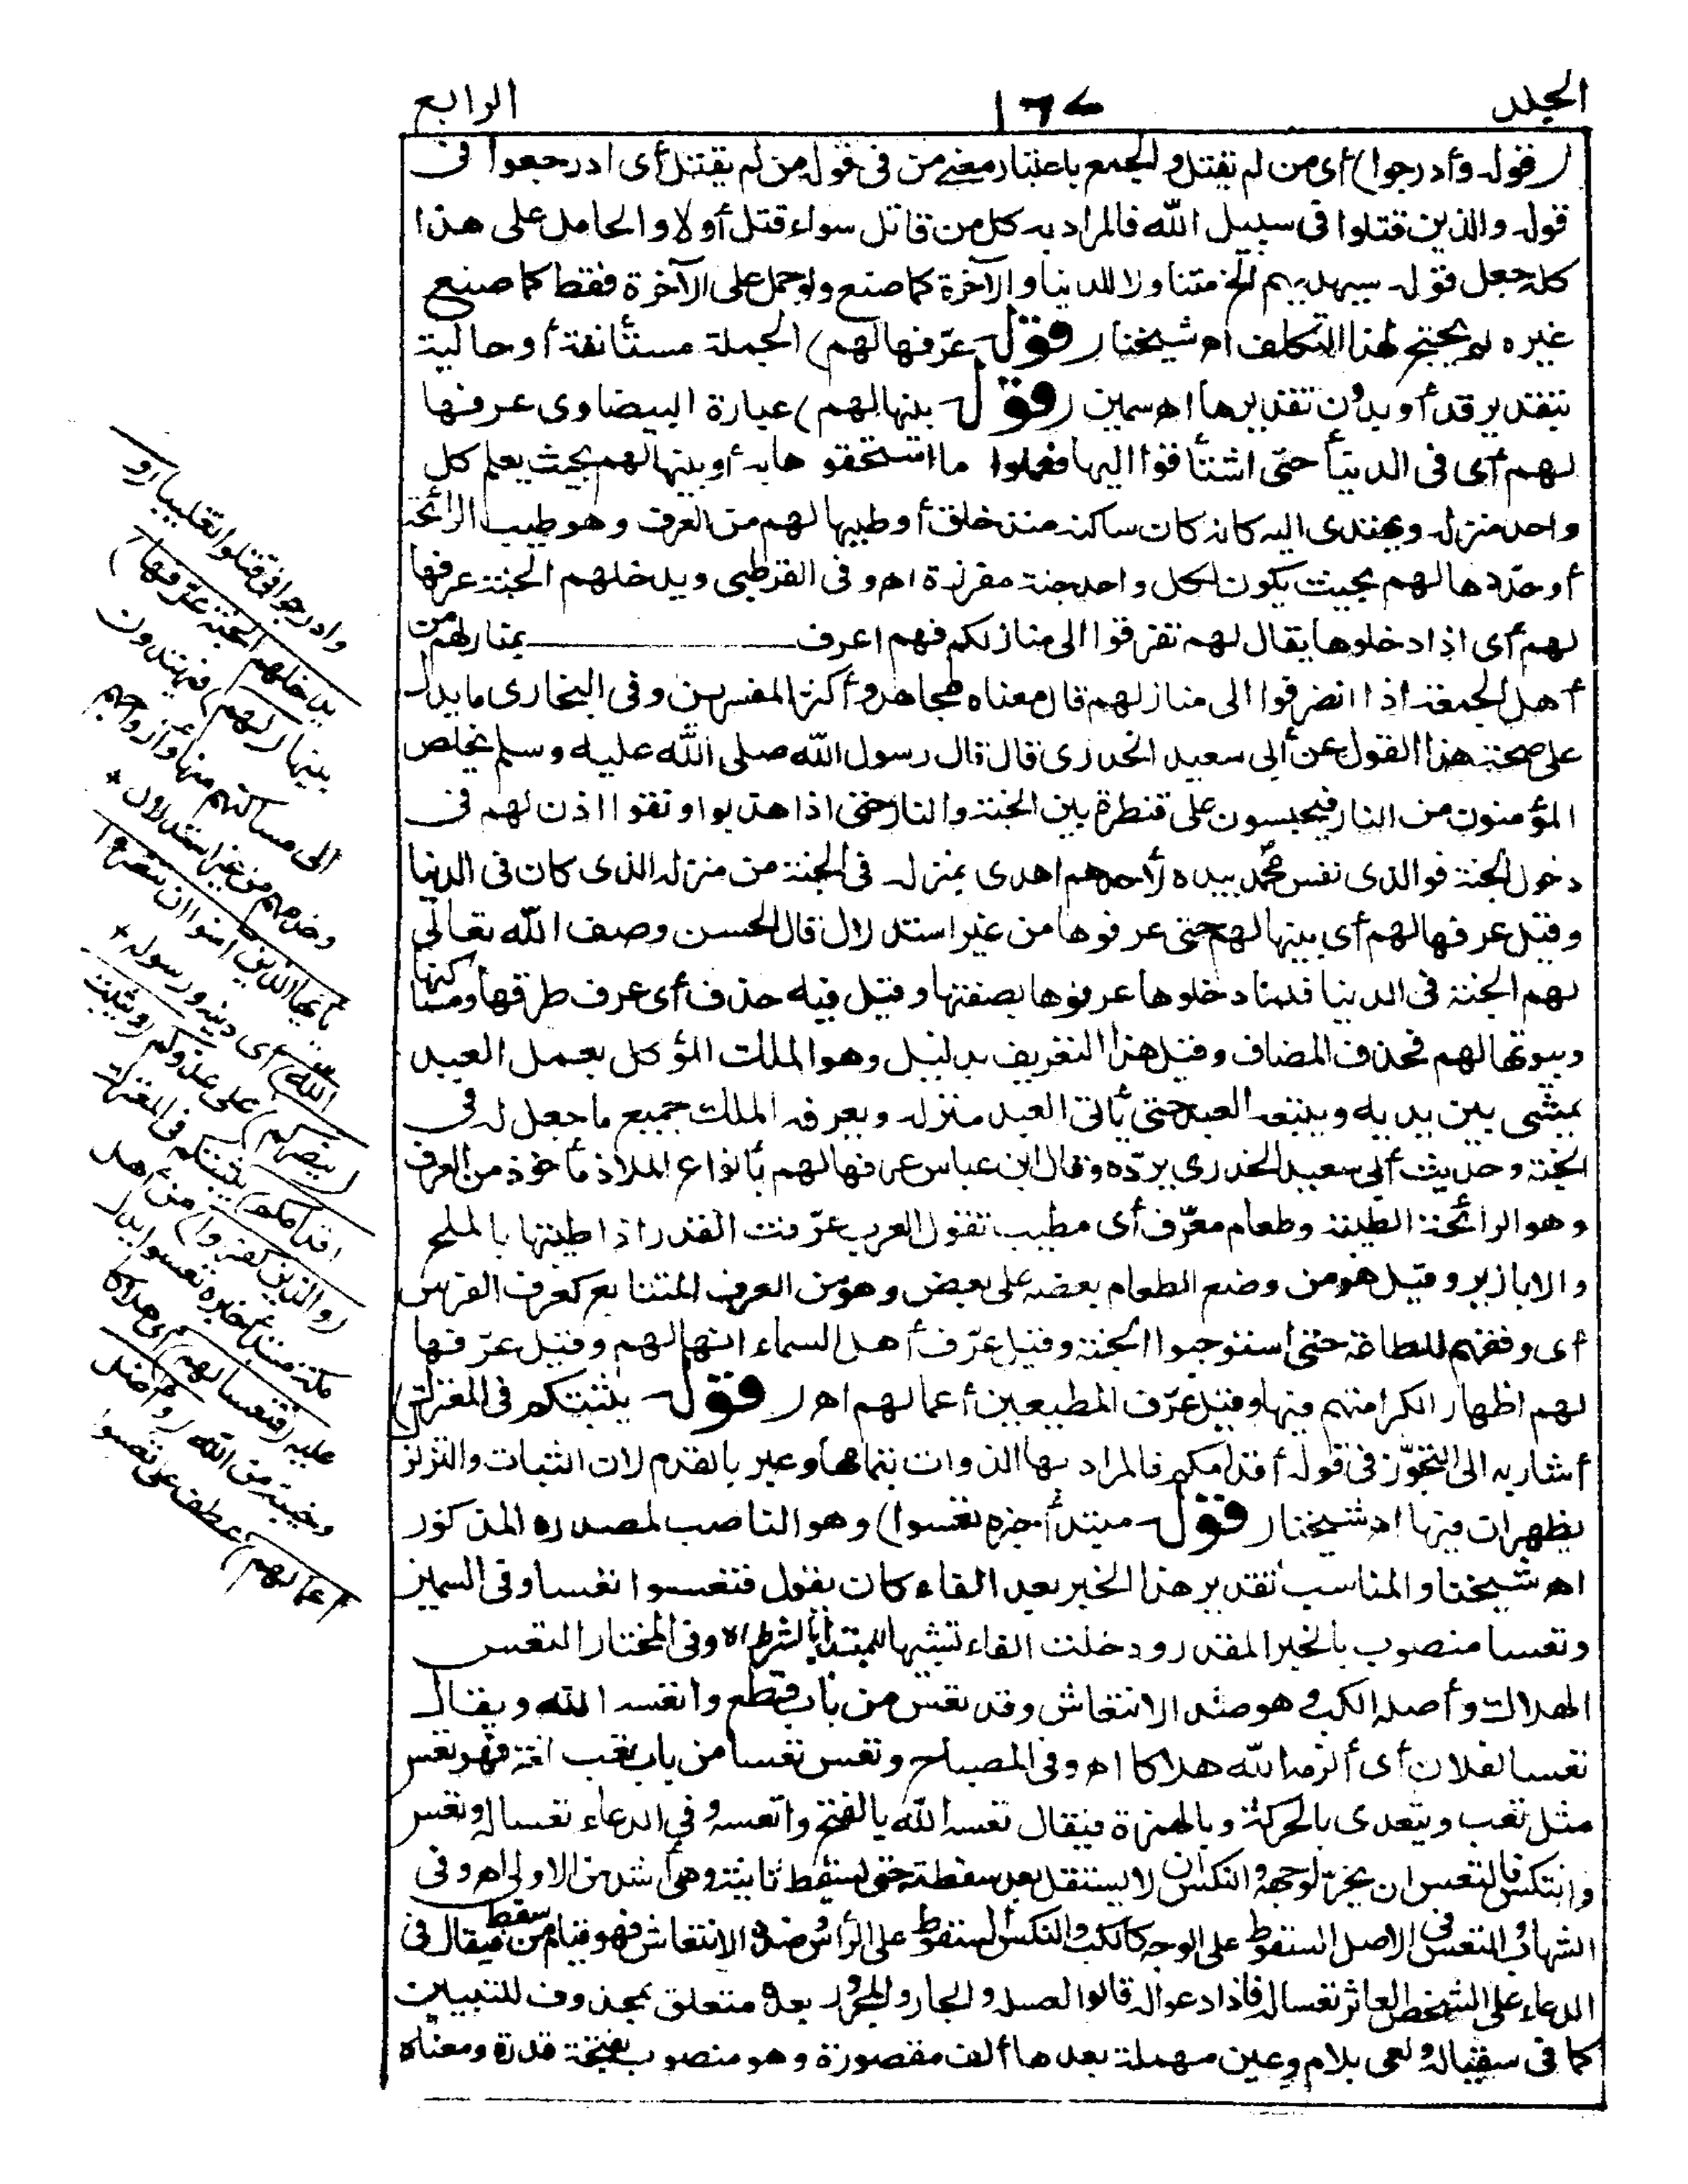 المجلد
الرابع
(قوله وأدرجوا) أى من لم يقتل والجمع باعتبار معنى من فى قوله من لم يقتل أى ادرجعوا فى
قوله والذين قتلوا فى سبيل الله فالمراد به كل من قاتل سواء قتل أو لا والحامل على هذا
كله جعل قوله سيهديهم الخ متناولا للدنيا والآخرة كما صنع ولو حمل على الآخرة فقط كما صنع
غيره لم يحتج لهذا التكلف اه شيخنا (قوله عرّفها لهم) الجملة مستأنفة أو حالية
بتقدير قد أو بدون تقديرها اه سمين (قوله بينها لهم) عبارة البيضاوى عرفها
لهم أى فى الدنيا حتى اشتاقوا اليها فعملوا ما استحقوها به أو بينها لهم بحيث يعلم كل
واحد منزله ويهتدى اليه كانه كان ساكنه منذ خلق أو طيبها لهم من العرف وهو طيب الرائحة
أو حدّدها لهم بحيث يكون لكل واحد جنة مفرزة اه وفى القرطبى ويدخلهم الجنة عرفها
لهم أى اذا دخلوها يقال لهم تفرقوا الى منازلكم فهم اعرف بمنازلهم من
أهل الجمعة اذا انصرفوا الى منازلهم قال معناه مجاهد وأكثر المفسرين وفى البخارى ما يدل
على صحة هذا القول عن أبى سعيد الخدرى قال قال رسول الله صلى الله عليه وسلم يخلص
المؤمنون من النار فيحبسون على قنطرة بين الجنة والنار حتى اذا هذبوا ونقوا اذن لهم فى
دخول الجنة فوالذى نفس محمد بيده لأحدهم اهدى بمنزله فى الجنة من منزله الذى كان فى الدنيا
وقيل عرفها لهم أى بينها لهم حتى عرفوها من غير استدلال قال الحسن وصف الله تعالى
لهم الجنة فى الدنيا فلما دخلوها عرفوها بصفتها وقيل فيه حذف أى عرف طرقها ومساكنها
وبيوتها لهم فحذف المضاف وقيل هذا التعريف بدليل وهو الملك المؤكل بعمل العبد
يمشى بين يديه ويتبعه العبد حتى يأتى العبد منزله ويعرفه الملك جميع ما جعل له فى
الجنة وحديث أبى سعيد الخدرى يردّه وقال ابن عباس عرفها لهم بأنواع الملاذ مأخوذ من العرف
وهو الرائحة الطيبة وطعام معرّف أى مطيب تقول العرب عرّفت القدر اذا طيبتها بالملح
والابازير وقيل هو من وضع الطعام بعضه على بعض وهو من العرف المتتابع كعرف الفرس
أى وفقهم للطاعة حتى استوجبوا الجنة وقيل عرّف أهل السماء انها لهم وقيل عرّفها
لهم اظهارا لكرامتهم فيها وقيل عرّف المطيعين أعمالهم اه (قوله يثبتكم فى المعترك)
أشار به الى التجوّز فى قوله أقدامكم فالمراد بها الذوات بتمامها وعبر بالقدم لان الثبات والتزلزل
يظهران فيها اه شيخنا (قوله مبتدأ خبره تعسوا) وهو الناصب لمصدره المذكور
اه شيخنا والمناسب تقدير هذا الخبر بعد الفاء كان يقول فتعسوا تعسا وفى السمين
وتعسا منصوب بالخبر المقدر ودخلت الفاء تشبيها للمبتدا بالشرط اه وفى المختار التعس
الهلاك وأصله الكب وهو ضد الانتعاش وقد تعس من باب قطع وأتعسه الله ويقال
تعسا لفلان أى ألزمه الله هلاكا اه وفى المصباح وتعس تعسا من باب تعب لغة فهو تعس
مثل تعب ويتعدى بالحركة وبالهمزة فيقال تعسه الله بالفتح وأتعسه وفى الدعاء تعسا له وتعس
وانتكس فالتعس ان يخر لوجهه والنكس ان لا يستقل بعد سقطته حتى يسقط ثانية وهى أشد من الاولى اه وفى
الشهاب والتعس فى الاصل السقوط على الوجه كالكب والنكس السقوط على الرأس وضده الانتعاش فهو قيام من سقط فيقال فى
الدعاء على الشخص العاثر تعسا له فاذا دعوا له قالوا لعا له والجار والمجرور بعده متعلق بمحذوف للتبيين
كما فى سقيا له ولعى بلام وعين مهملة بعدها ألف مقصورة وهو منصوب بفتحة مقدرة ومعناه
وادرجوا فى قتلوا تغليبا (و
يدخلهم الجنة عرّفها)
بينها (لهم) فيهتدون
الى مساكنهم منها وأزواجهم
وخدمهم من غير استدلال
يأيها الذين امنوا ان تنصروا
الله) أى دينه ورسوله
(ينصركم) على عدوكم (ويثبت
اقدامكم) يثبتكم فى المعترك
(والذين كفروا) من أهل
مكة مبتدأ خبره تعسوا يدل
عليه (فتعسا لهم) أى هلاكا
وخيبة من الله (وأضل
أعمالهم) عطف على تعسوا